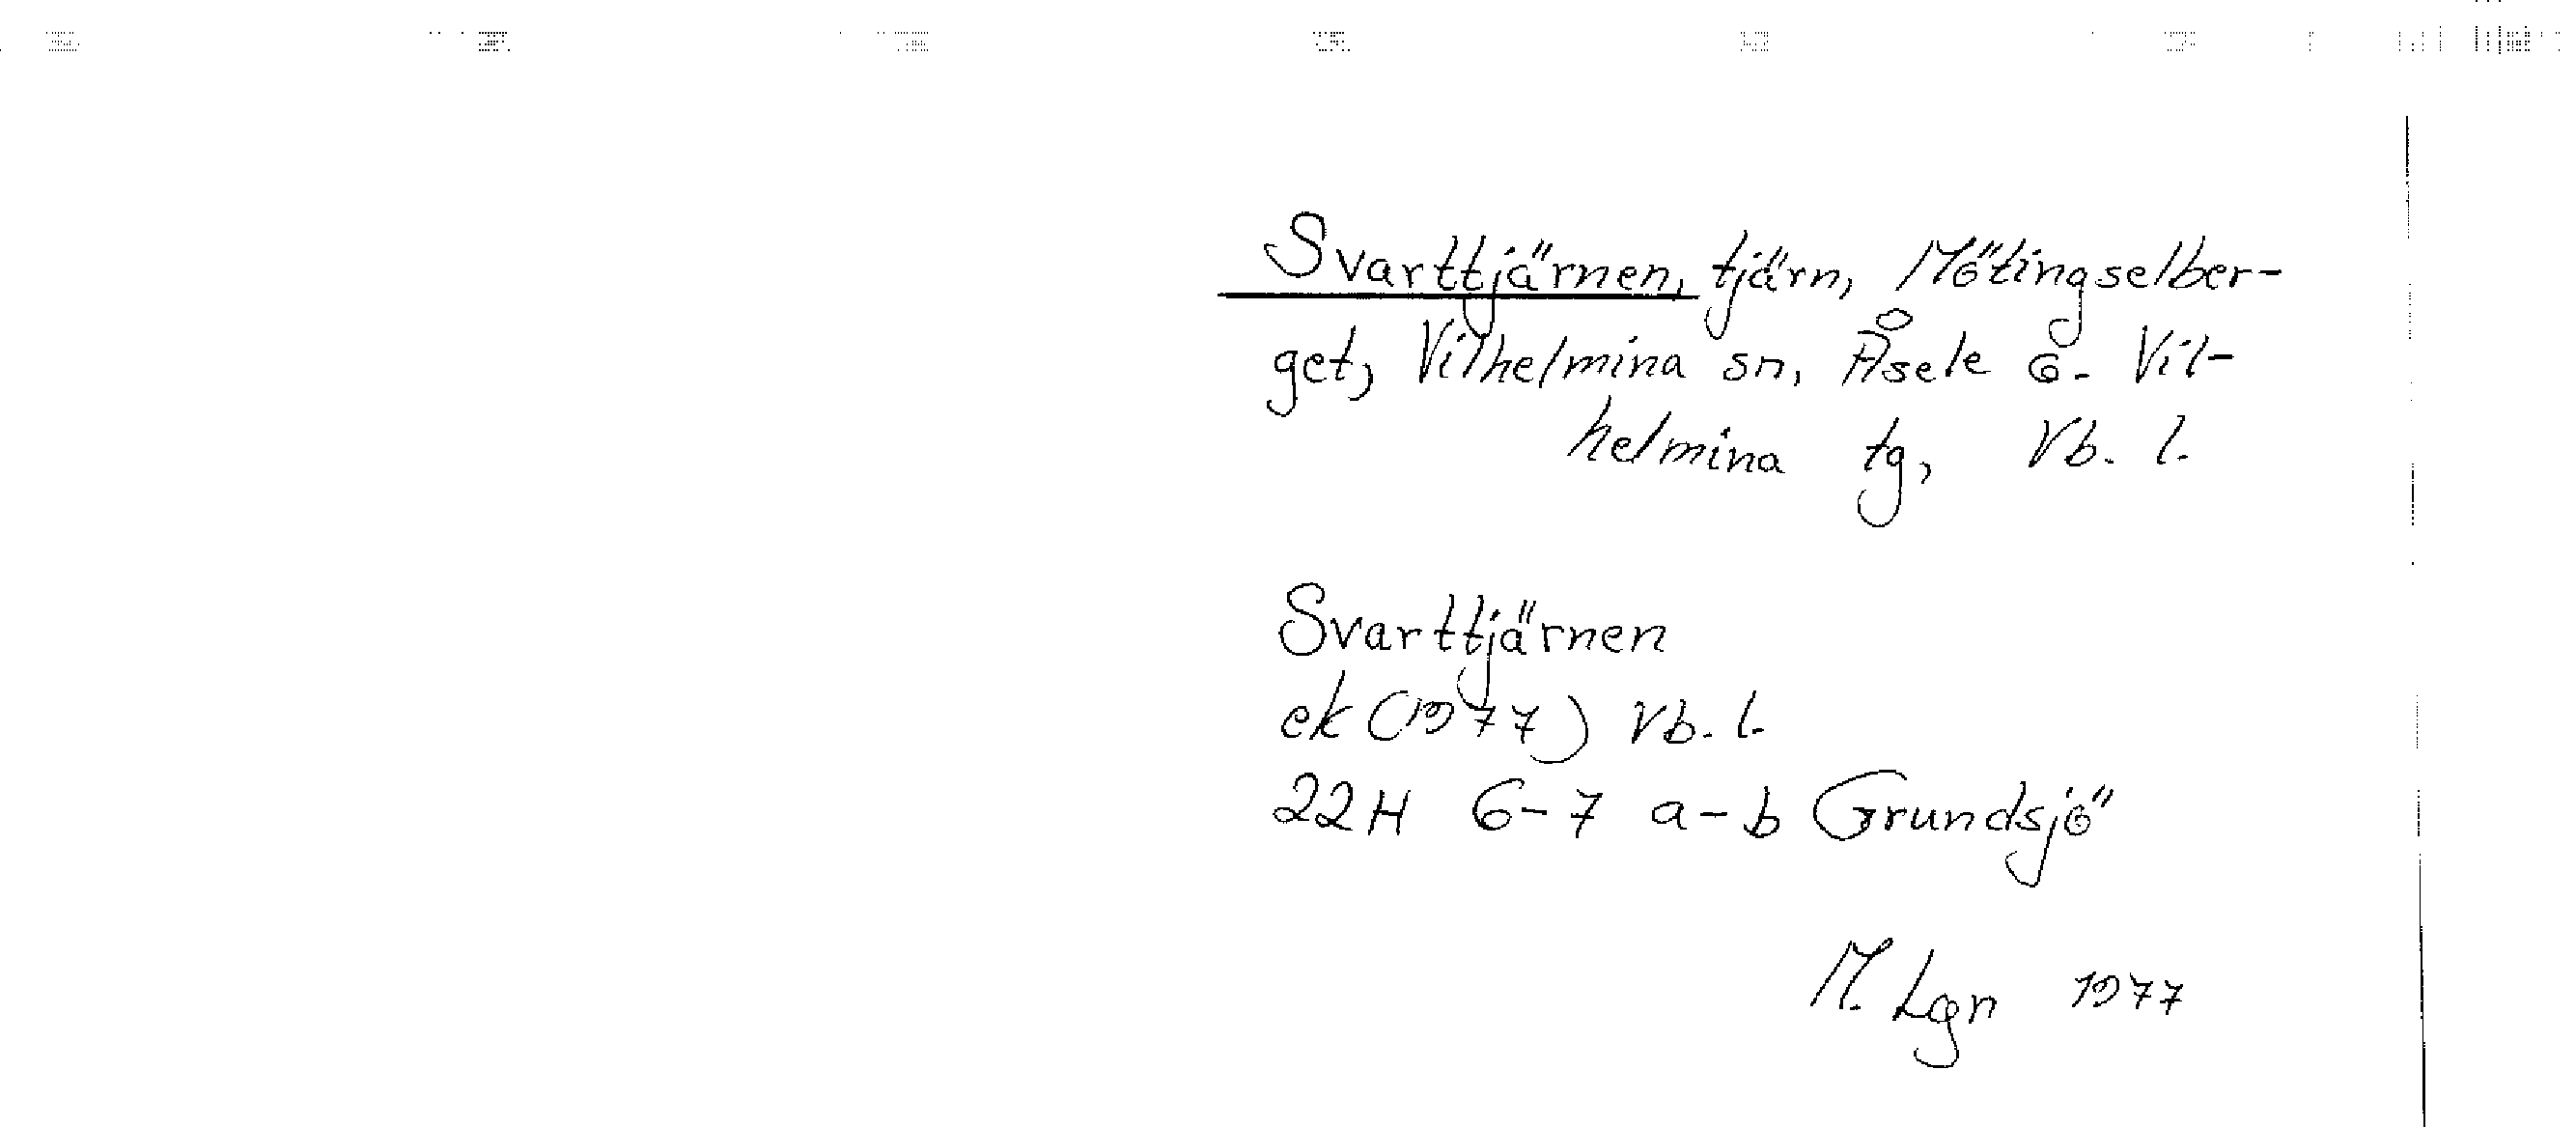 Svarttjärnen, tjärn, Mötingselber-
get, Vilhelmina sn, Åsele o. Vil-
helmina tg, Vb. l.
Svarttjärnen
ek (1977) Vb. l.
22H 6-7 a-b Grundsjö
M. Lgn 1977